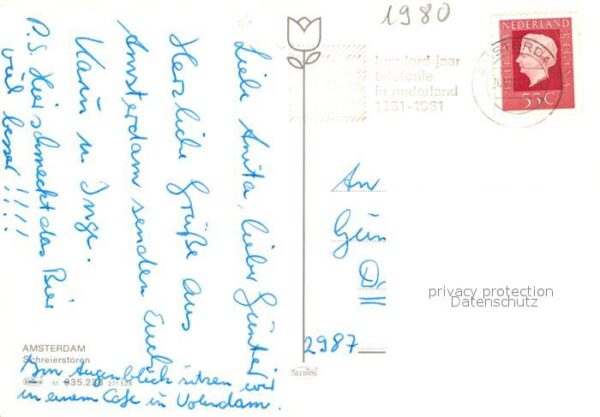 1980
NEDERLAND
55c
honderd jaar
telefonie
in nederland
1881-1981
Liebe Anita, lieber Günther
Herzliche Grüße aus
Amsterdam senden Euch
u Inge.
P.S. Hier schmeckt das Bier
viel besser!!!!
AMSTERDAM
Schreierstoren
Im Augenblick sitzen wir
in einem Cafe in Volendam.
An
2987
privacy protection
Datenschutz